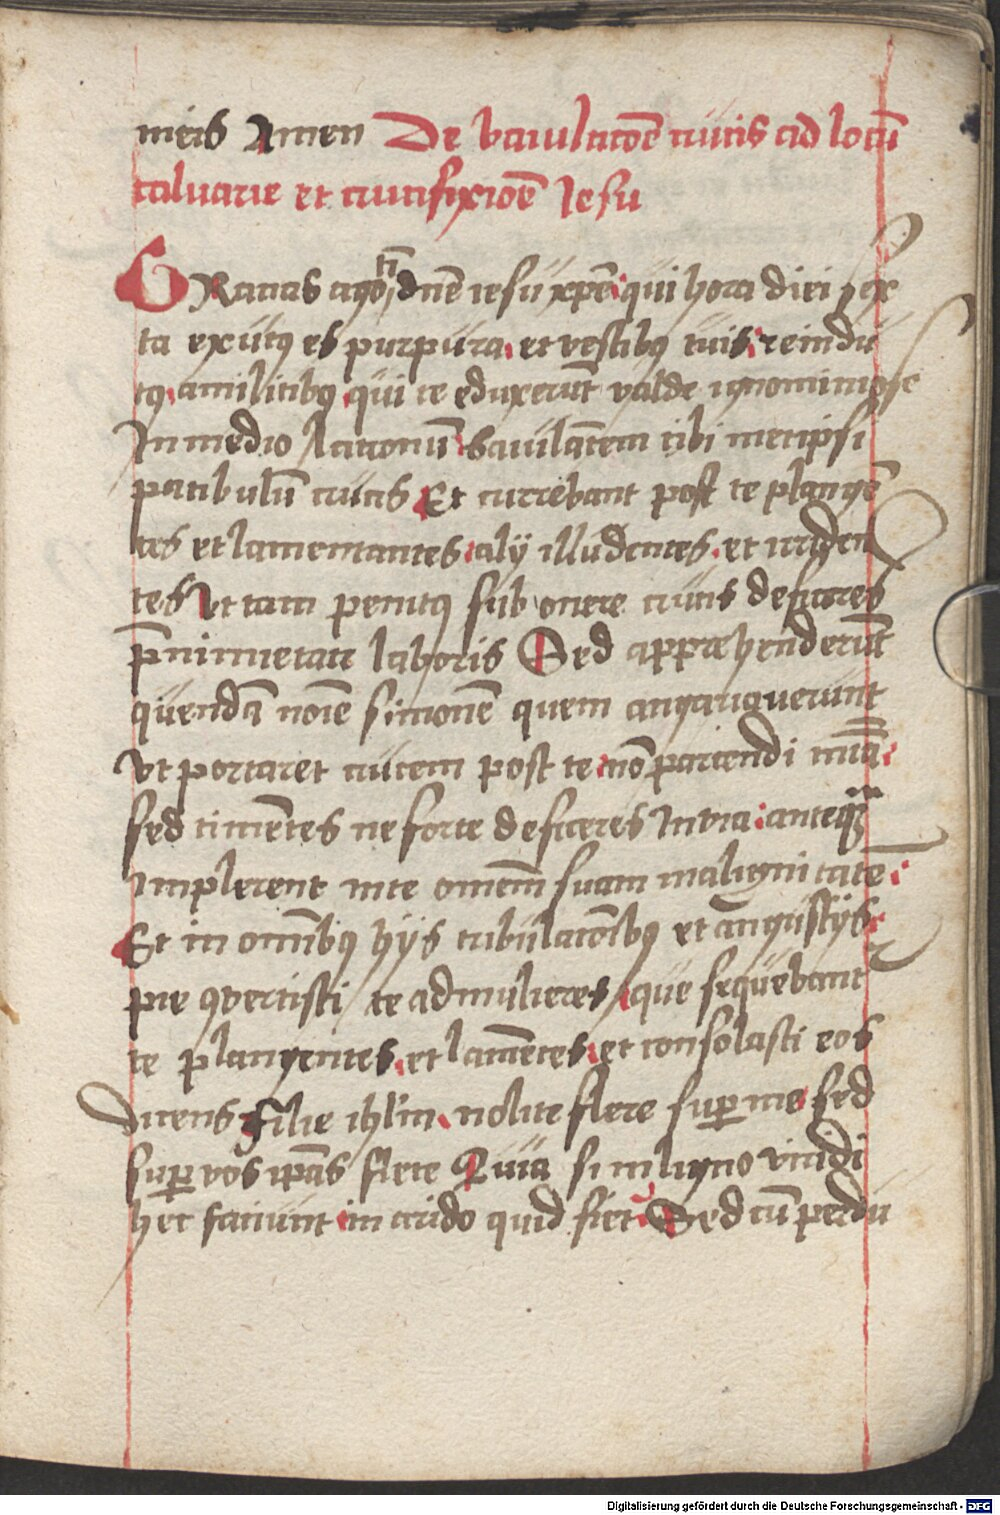 meis Amen De baiulatōe crucis ad locū
caluarie et crucifixiōe Iesu
GRatias ago tī dn̄e iesu xp̄e qui hora diei sex
ta exutꝯ es purpura et vestibꝯ tuis reindu
tꝯ a militibꝯ qui te eduxerūt valde ignominiose
In medio latronū baiulātem tibi metipsi
patibulū crucis Et currebant post te plangē
tes et lamentantes alij illudentes et irriden
tes Vt tam penitꝯ sub onere crucis deficeres
p̄ nimietati laboris Sed appræhenderūt
quendā noīe simonē quem angariauerunt
vt portaret crucem post te nō parcendi cauā
sed timētes ne forte deficeres In via anteqꝫ
implerent in te omnem̄ suam malignitatē
Et in omībꝯ hijs tribulatōibꝯ et angustijs
pie ꝯuertisti te ad mulieres que sequebant
te plangentes et lamētes et consolasti eos
dicens filie ihrl̄m nolite flere suꝑ me sed
suꝑ vos ip̄as flete Quia si in ligno viridi
hec faciunt in arido quid fiet Sed cū perdu
Digitalisierung gefördert durch die Deutsche Forschungsgemeinschaft - DFG